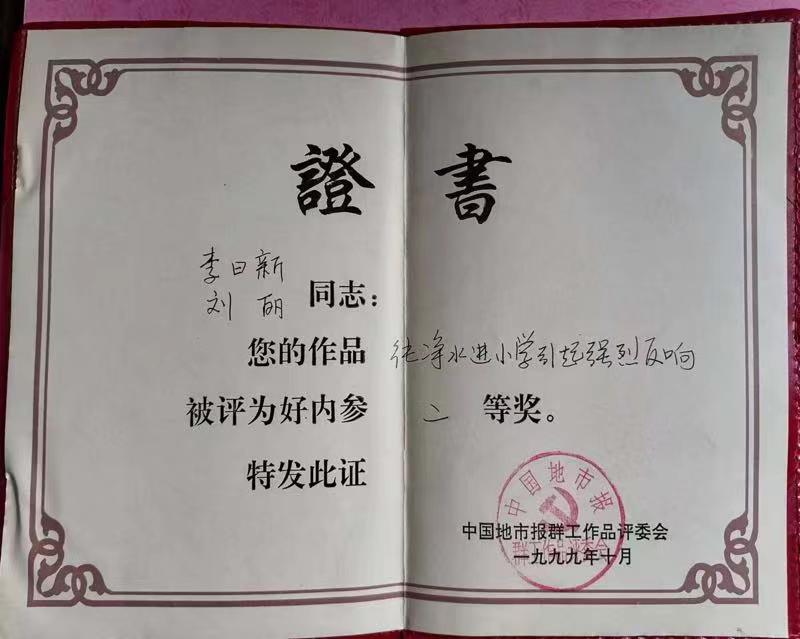 證書
李日新
刘丽 同志：
您的作品 纯净水进小学引起强烈反响
被评为好内参 二 等奖。
特发此证
中国地市报群工作品评委会
一九九九年十月
中国地市报
群工作品评委会